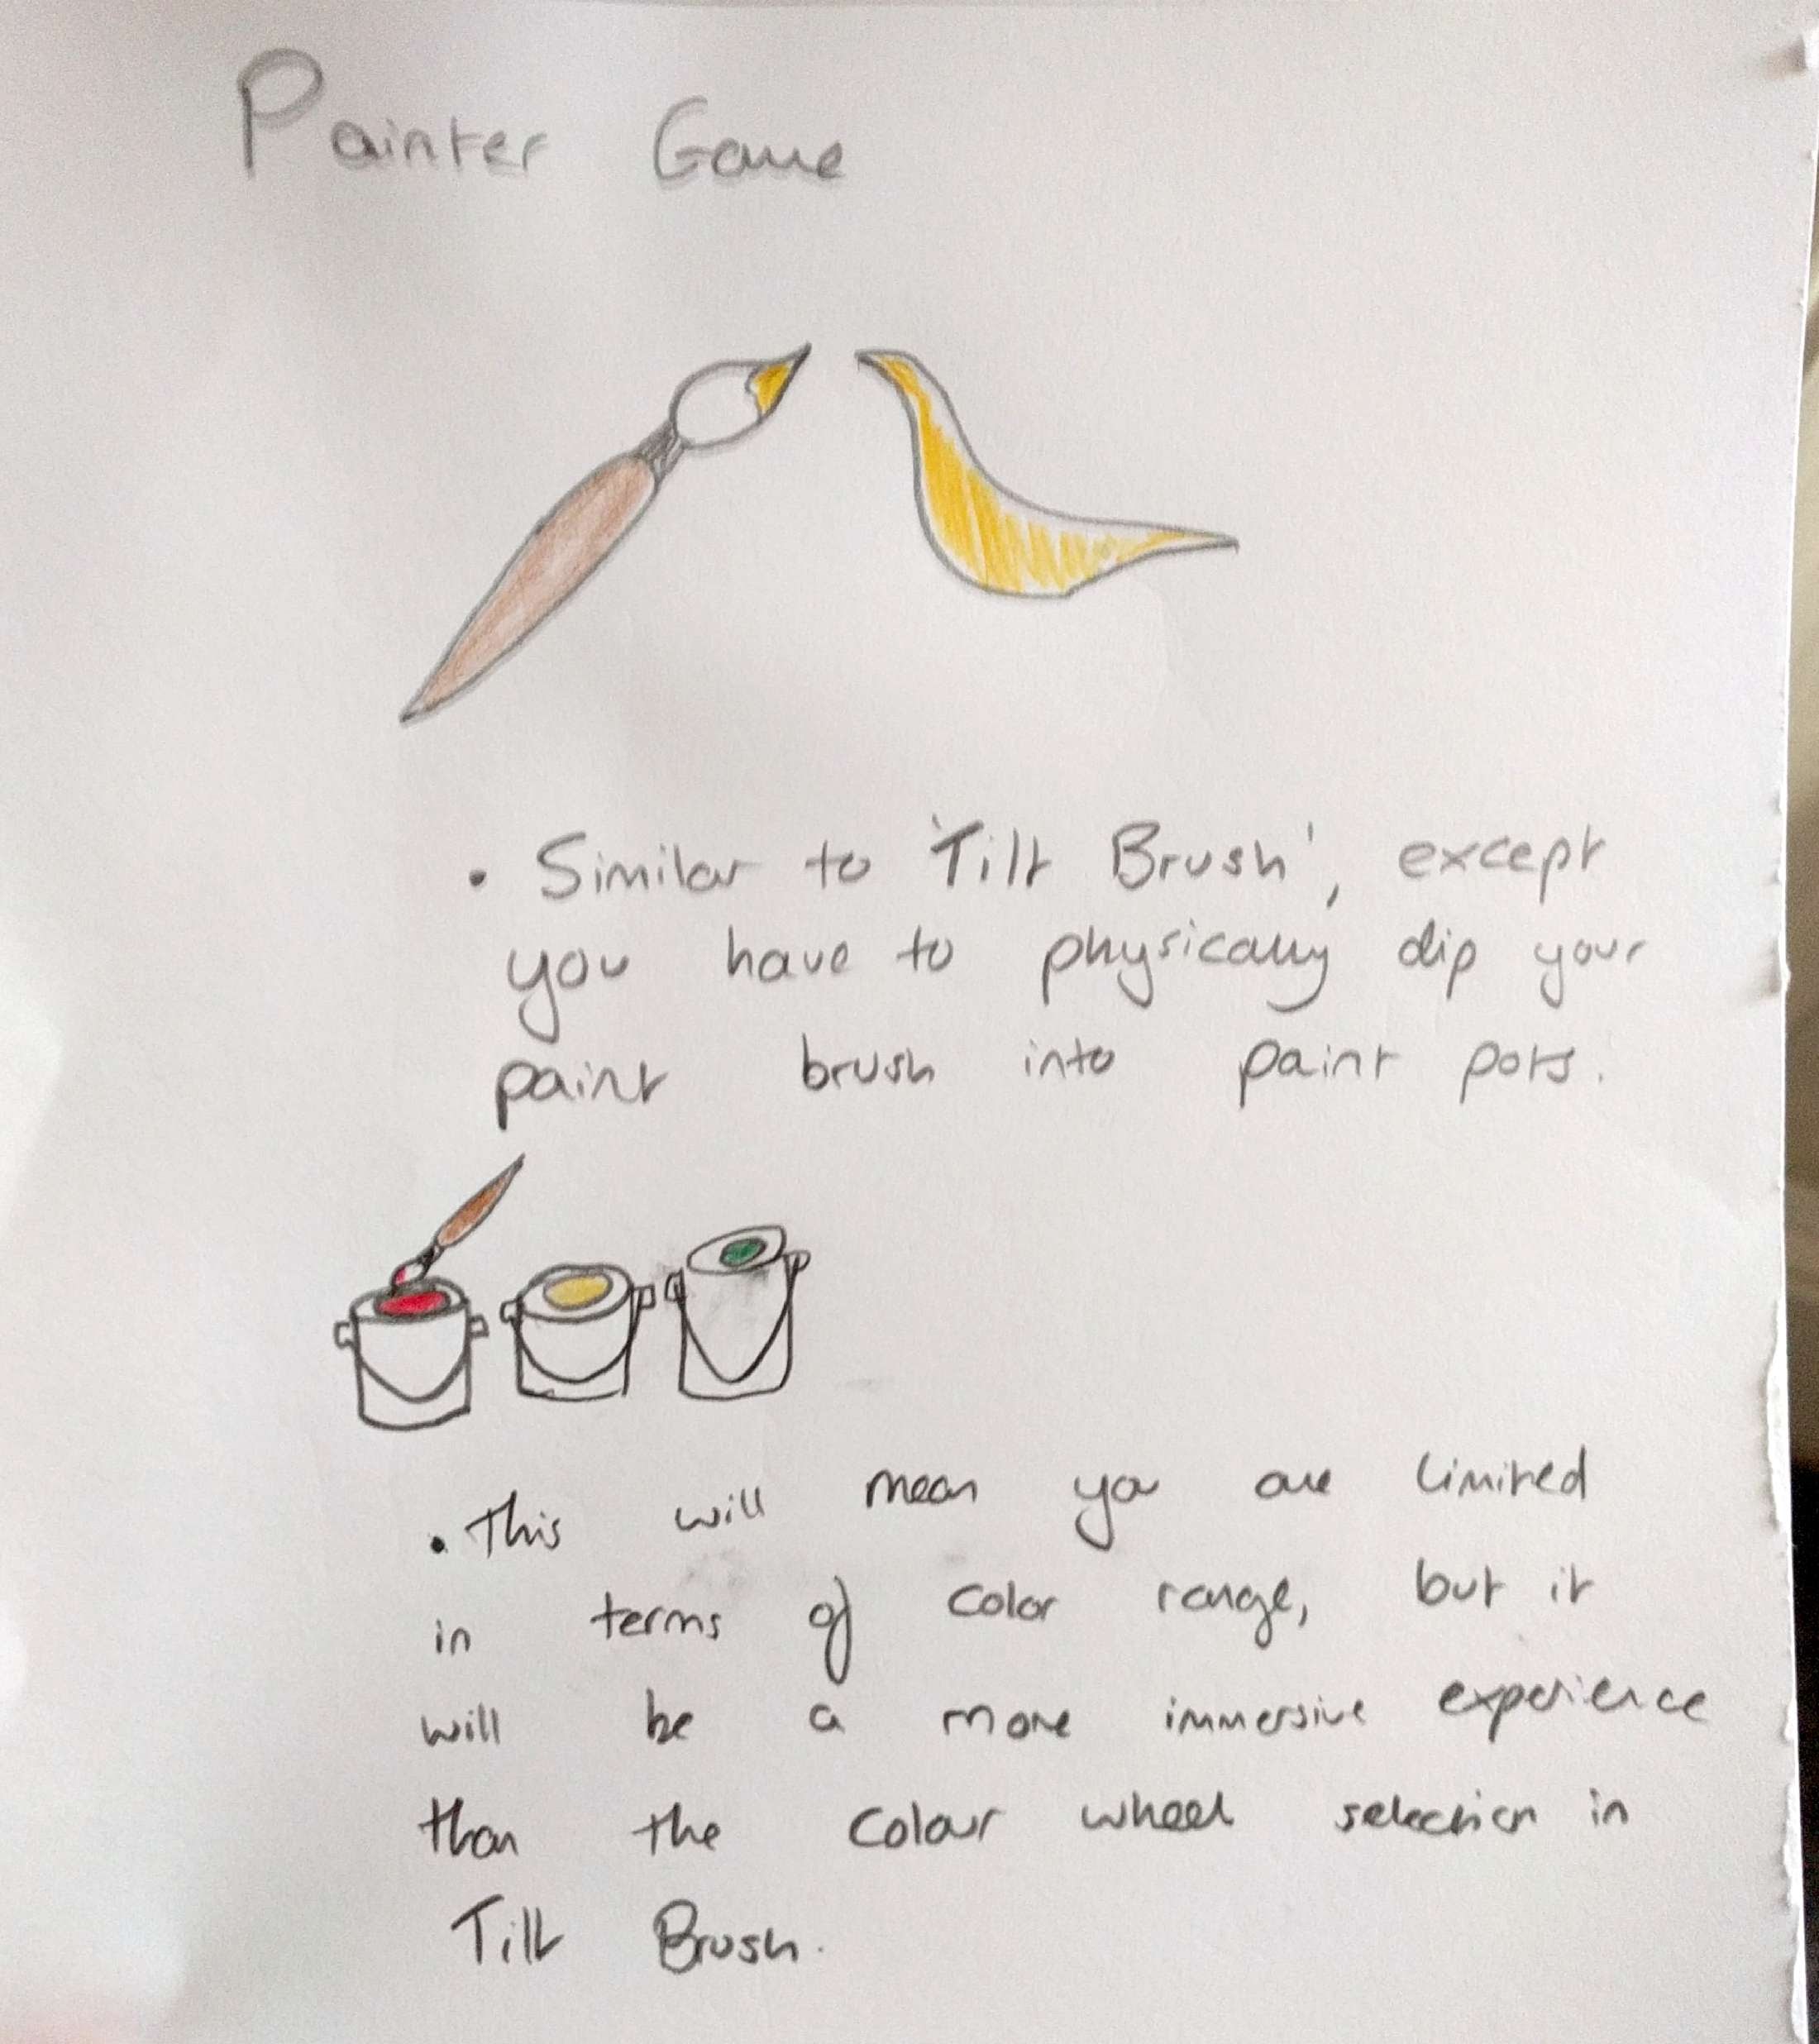 Painter Game
• Similar to 'Tilt Brush', except
you have to physically dip your
paint brush into paint pots.
• This will mean you are limited
in terms of color range, but it
will be a more immersive experience
than the colour wheel selection in
Tilt Brush.